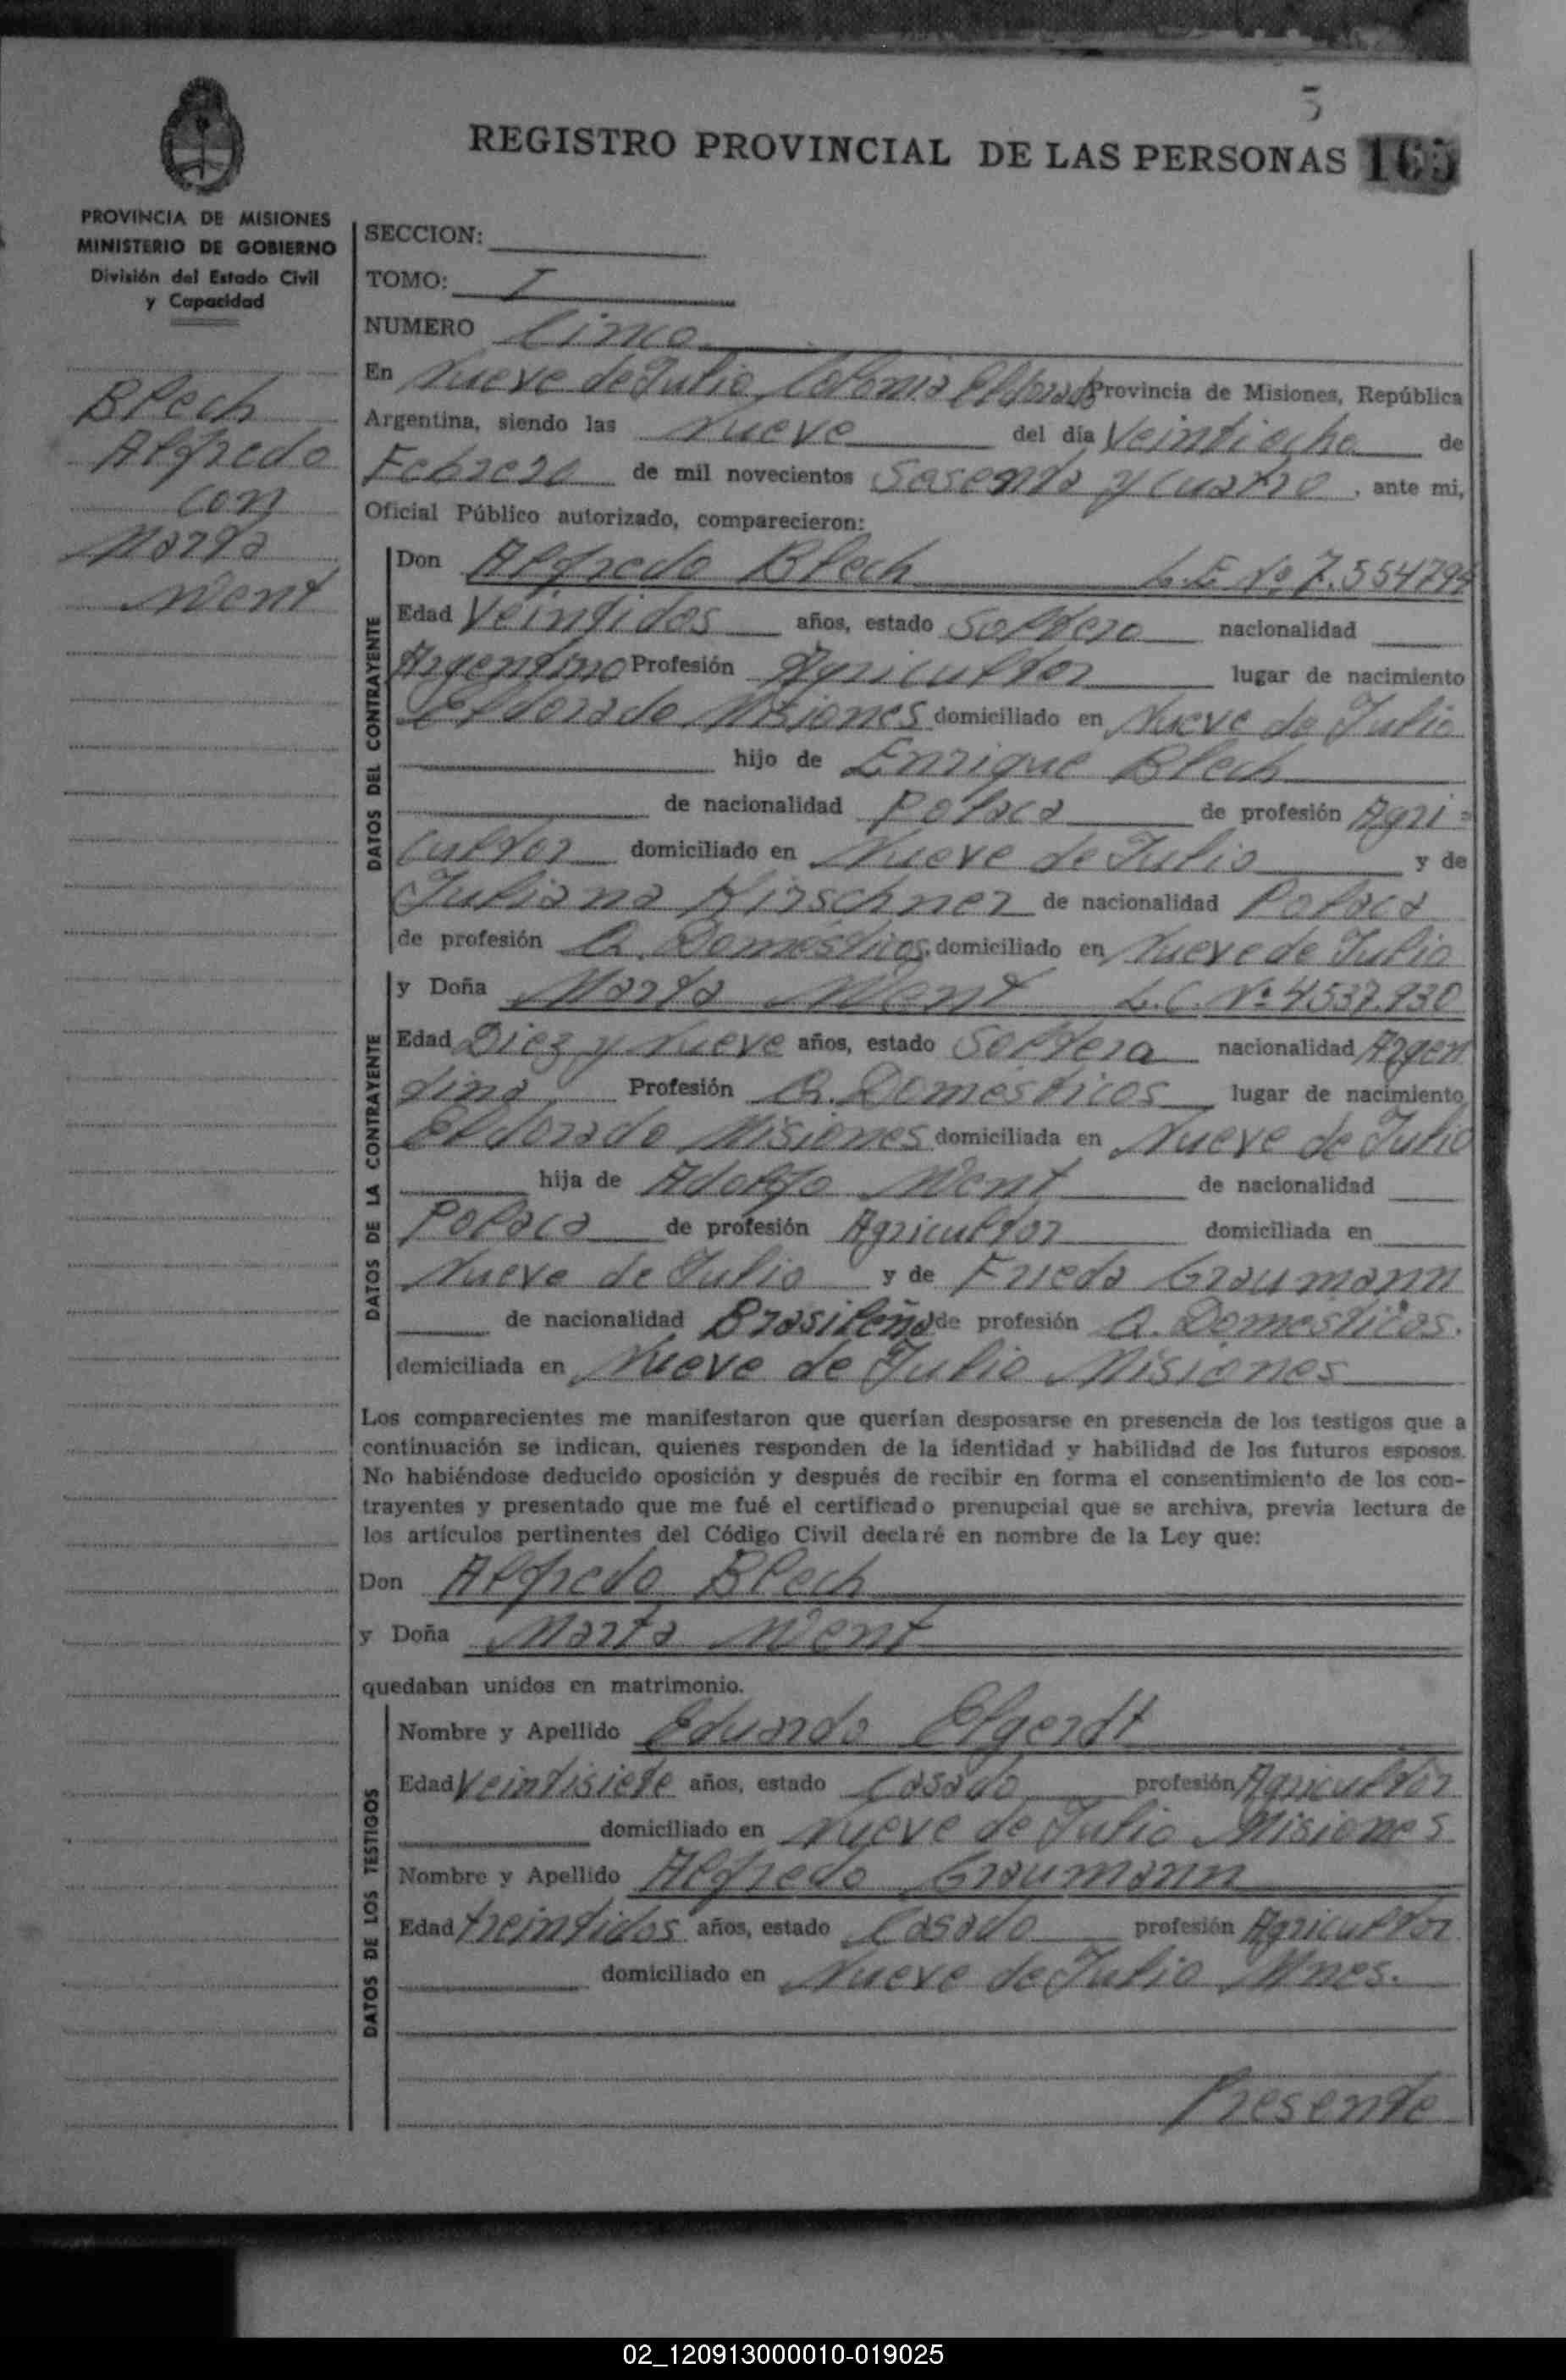 5
REGISTRO PROVINCIAL DE LAS PERSONAS 165
PROVINCIA DE MISIONES
MINISTERIO DE GOBIERNO
División del Estado Civil
y Capacidad
Blech
Alfredo
con
Marta
Went
SECCION:
TOMO: I
NUMERO Cinco
En Nueve de Julio, Colonia Eldorado Provincia de Misiones, República
Argentina, siendo las Nueve del día Veintiocho de
Febrero de mil novecientos Sesenta y cuatro, ante mi,
Oficial Público autorizado, comparecieron:
DATOS DEL CONTRAYENTE
Don Alfredo Blech L.E Nº 7.554794
Edad Veintidos años, estado Soltero nacionalidad
Argentino Profesión Agricultor lugar de nacimiento
Eldorado Misiones domiciliado en Nueve de Julio
hijo de Enrique Blech
de nacionalidad Polaca de profesión Agri=
cultor domiciliado en Nueve de Julio y de
Juliana Kirschner de nacionalidad Polaca
de profesión Q. Domésticos, domiciliado en Nueve de Julio
DATOS DE LA CONTRAYENTE
y Doña Marta Went L.C. Nº 4537.930
Edad Diez y Nueve años, estado Soltera nacionalidad Argen
tina Profesión Q. Domesticos lugar de nacimiento
Eldorado Misiones domiciliada en Nueve de Julio
hija de Adolfo Went de nacionalidad
Polaca de profesión Agricultor domiciliada en
Nueve de Julio y de Frieda Graumann
de nacionalidad Brasileña de profesión Q. Domesticos.
domiciliada en Nueve de Julio Misiones
Los comparecientes me manifestaron que querían desposarse en presencia de los testigos que a
continuación se indican, quienes responden de la identidad y habilidad de los futuros esposos.
No habiéndose deducido oposición y después de recibir en forma el consentimiento de los con-
trayentes y presentado que me fué el certificado prenupcial que se archiva, previa lectura de
los artículos pertinentes del Código Civil declaré en nombre de la Ley que:
Don Alfredo Blech
y Doña Marta Went
quedaban unidos en matrimonio.
DATOS DE LOS TESTIGOS
Nombre y Apellido Eduardo Elgerdt
Edad Veintisiete años, estado Casado profesión Agricultor
domiciliado en Nueve de Julio Misiones
Nombre y Apellido Alfredo Graumann
Edad treintidos años, estado Casado profesión Agricultor
domiciliado en Nueve de Julio Mnes.
Presente
02_120913000010-019025